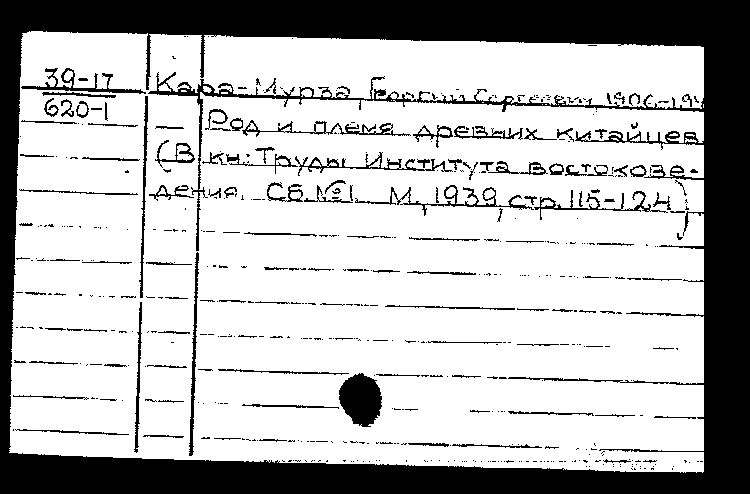 39-17 Кара-Мурза, Георгий Сергеевич, 1906-194
620-1 — Род и племя древних китайцев
(В кн: Труды Института востокове-
дения. Сб. №1. М., 1939, стр. 115-124)